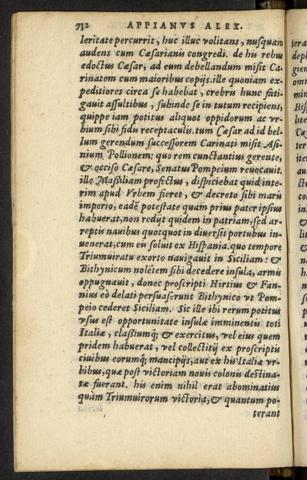 732 APPIANVS ALEX.
leritate percurrit, huc illuc volitans, nusquam
audens cum Cæsarianis congredi. de his rebus
edoctus Cæsar, ad eum debellandum misit Ca-
rinatem cum maioribus copijs. ille quoniam ex-
peditiores circa se habebat, crebris hunc fati-
gauit assultibus, subinde se in tutum recipiens,
quippe iam potitus aliquot oppidorum ac vr-
bium sibi fidu receptaculis. tum Cæsar ad id bel-
lum gerendum successorem Carinati misit Asi-
nium Pollionem: quo rem cunctantius gerente,
& occiso Cæsare, Senatus Pompeium reuocauit.
ille Massiliam profectus, dispiciebat quid inte-
rim apud Vrbem fieret, & decreto sibi maris
imperio, eadē potestate quam prius pater ipsius
habuerat, non redijt quidem in patriam, sed ar-
reptis nauibus quotquot in diuersis portubus in-
uenerat, cum eis soluit ex Hispania. quo tempore
Triumuiratu exorto nauigauit in Siciliam: &
Bithynicum nolētem sibi decedere insula, armis
oppugnauit, donec proscripti Hirtius & Fan-
nius eò delati persuaserunt Bithynico vt Pom-
peio cederet Siciliam. Sic ille ibi rerum potitus
vsus est opportunitate insulæ imminentis toti
Italiæ, classumq; & exercitus, vel eius quem
pridem habuerat, vel collectitij ex proscriptis
ciuibus eorumq; mancipijs, aut ex his Italiæ vr-
bibus, quæ post victoriam nouis colonis destina-
tæ fuerant. his enim nihil erat abominatius
quàm Triumuirorum victoria, & quantum po-
terant